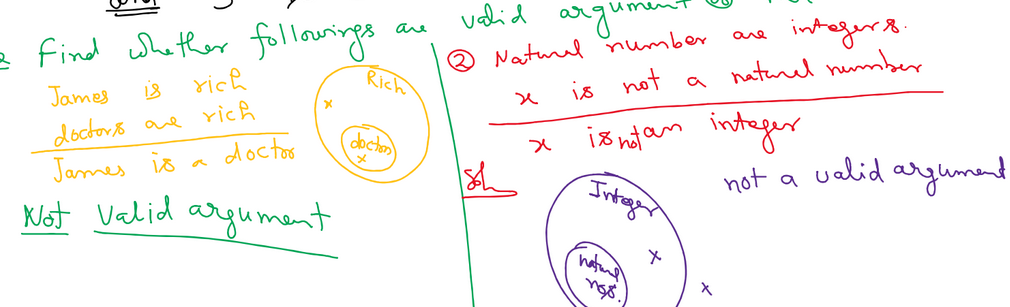 Find whether followings are valid argument
James is rich
doctors are rich
James is a doctor
Rich
x
doctors
x
Not Valid argument
② Natural number are integers.
x is not a natural number
x is not an integer
Sol
Integer
natural
nos.
x
x
not a valid argument